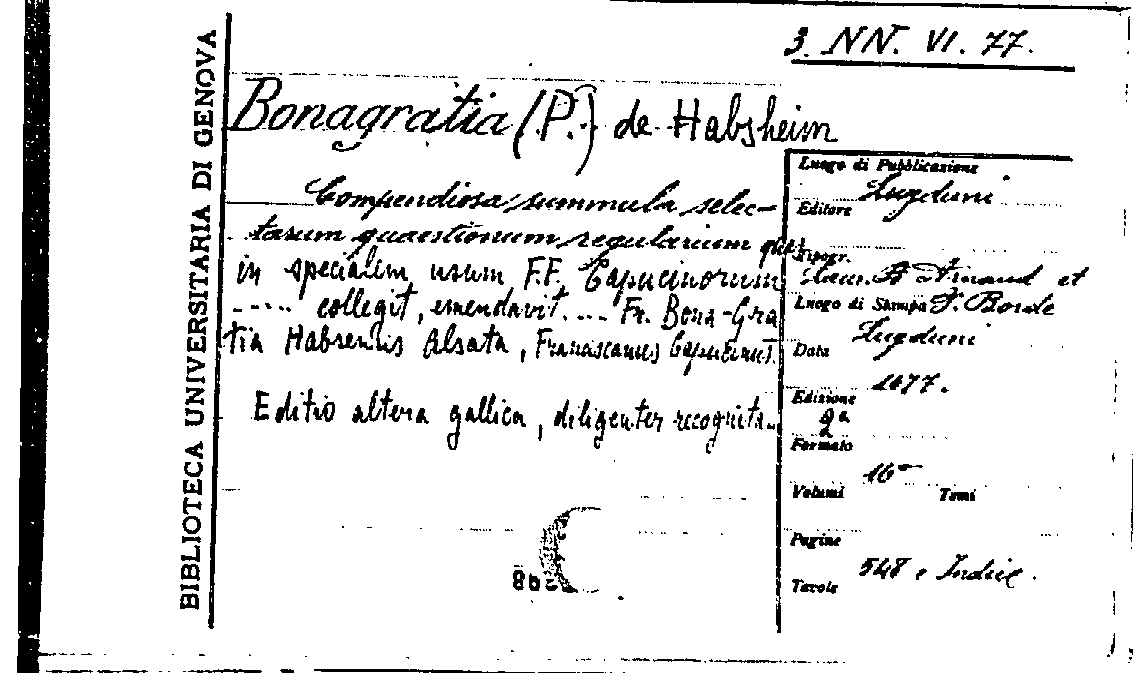 BIBLIOTECA UNIVERSITARIA DI GENOVA
3. NN. VI. 77.
Bonagratia (P.) de Habsheim
Compendiosa summula selec-
tarum quaestionum regularium quas
in specialem usum F.F. Capucinorum
..... collegit, emendavit.... Fr. Bona-Gra
tia Habsensis Alsata, Franciscanus Capucinus.
Editio altera gallica, diligenter recognita..
Luogo di Pubblicazione
Lugduni
Editore
Tipogr.
Laur. A Arnaud et
Luogo di Stampa P. Borde
Lugduni
Data
1677.
Edizione
2a
Formato
16°
Volumi Tomi
Pagine
548 e Indice.
Tavole